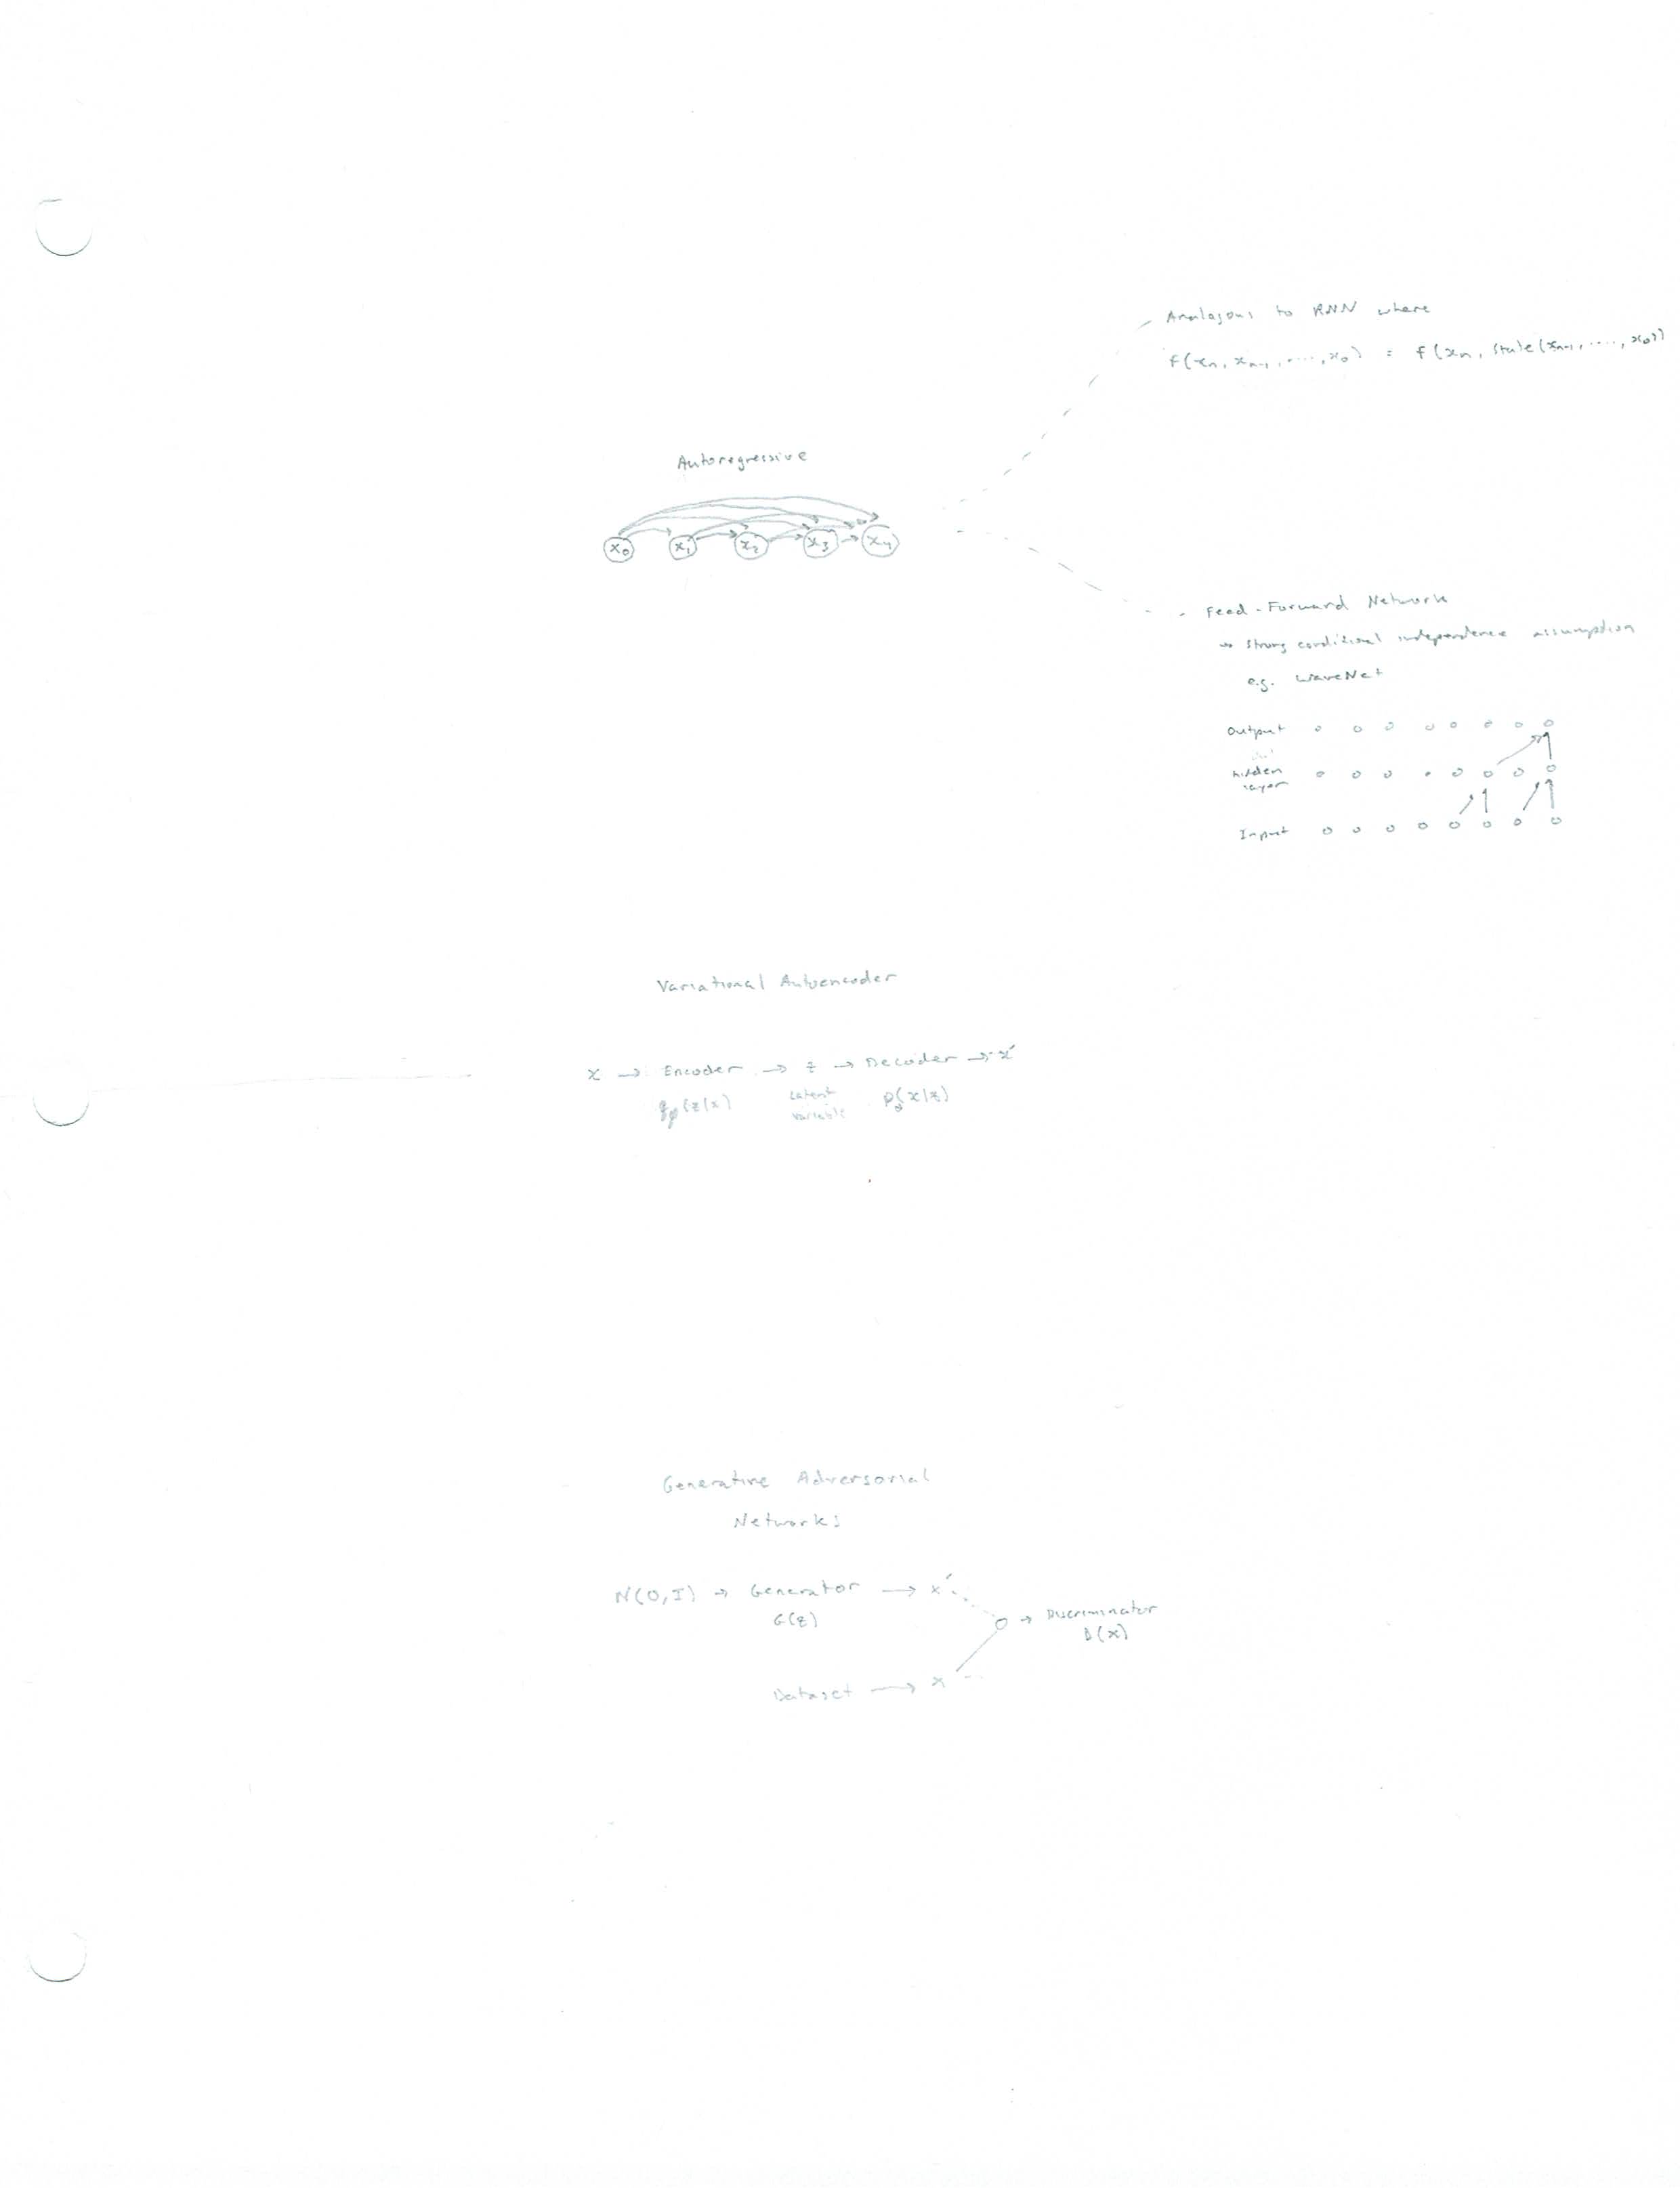 Analagous to RNN where
f(xn, xn-1, ...., x0) = f(xn, state(xn-1, ...., x0))
Autoregressive
x0 x1 x2 x3 x4
Feed-Forward Network
→ Strong conditional independence assumption
e.g. WaveNet
Output
hidden
layer
Input
Variational Autoencoder
x → Encoder → z → Decoder → x'
qφ(z|x) Latent pθ(x|z)
variable
Generative Adversorial
Networks
N(0,I) → Generator → x'
G(z)
→ Discriminator
D(x)
Dataset → x